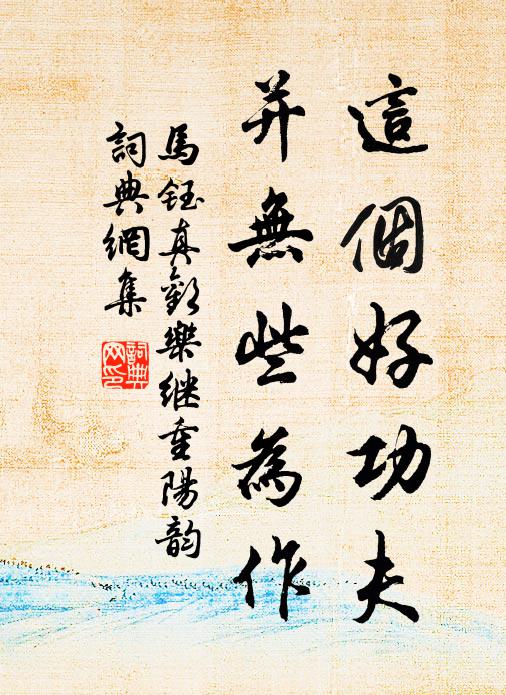 這個好功夫
并無些為作
馬鈺真歡樂继重陽韵
詞典網集
詞典网印